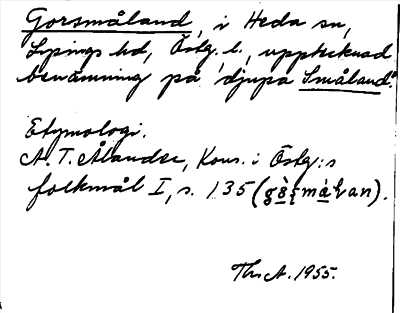 Gorsmåland, i Heda sn,
Lysings hd, Östg. l., upptecknad
benämning på "djupa Småland".
Etymologi.
A. T. Ålander, Kons. i Östg:s
folkmål I, s. 135
Ths A. 1955.